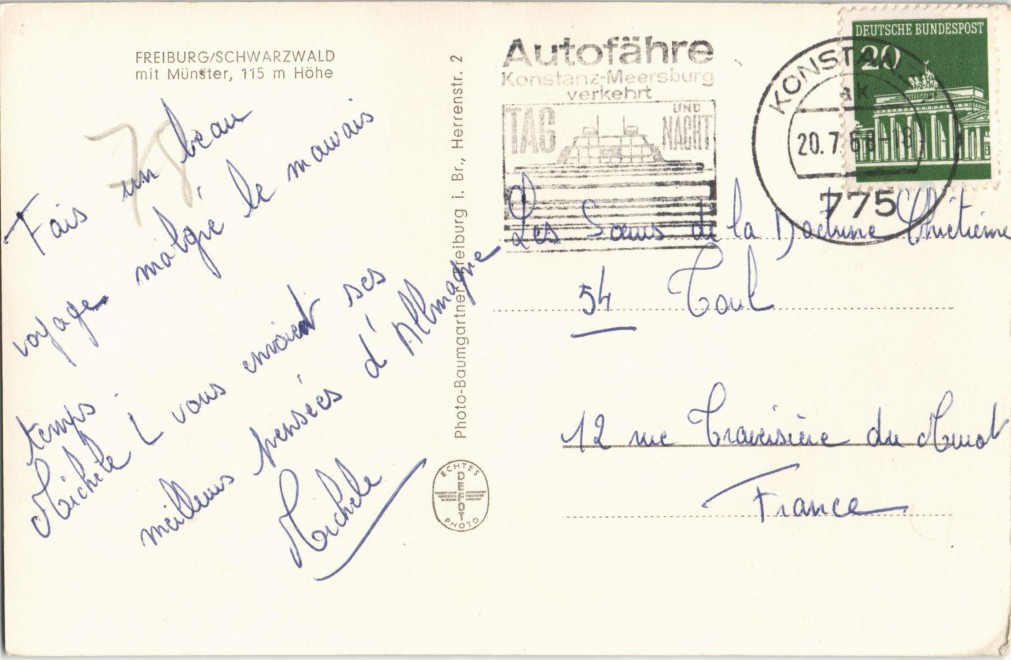 FREIBURG/SCHWARZWALD
mit Münster, 115 m Höhe
78
Fais un beau
voyage malgré le mauvais
temps.
Michèle L vous envoient ses
meilleurs pensées d'Allmagne
Michèle
Photo-Baumgartner, Freiburg i. Br., Herrenstr. 2
ECHTES
DEFOT
PHOTO
Autofähre
Konstanz-Meersburg
verkehrt
TAG UND NACHT
DEUTSCHE BUNDESPOST
20
KONSTANZ
20.7.68
775
Les Sœurs de la Doctrine Chrétienne
54 Toul
12 rue
France